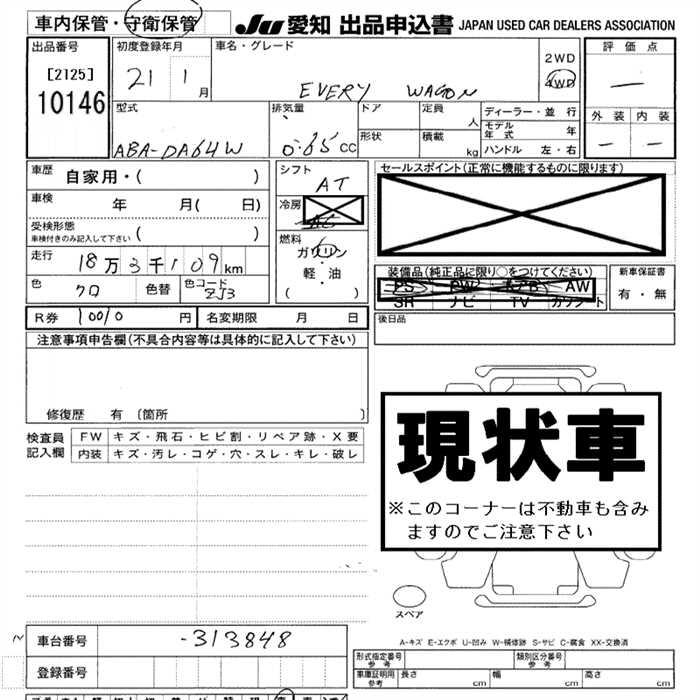 車内保管・守衛保管 JU 愛知 出品申込書 JAPAN USED CAR DEALERS ASSOCIATION
出品番号 初度登録年月 車名・グレード 2WD 評価点
[2125] 21 1月 EVERY WAGON 4WD
10146 型式 排気量 ドア 定員 人 ディーラー・並行 外装 内装
ABA-DA64W 0.65cc 形状 積載 kg モデル年式 年
ハンドル 左・右
車歴 自家用・( ) シフト AT セールスポイント(正常に機能するものに限ります)
車検 年 月( 日) 冷房 AC
受検形態 ( )
車検付きのみ記入して下さい
燃料 ガソリン
走行 18万3千109km 軽・油 装備品(純正品に限り○をつけてください) 新車保証書
色 クロ 色替 色コード ZJ3 ( ) PS PW AW 有・無
SR ナビ TV
R券 10010円 名変期限 月 日 後日品
注意事項申告欄(不具合内容等は具体的に記入して下さい)
修復歴 有 〔箇所 〕
検査員 FW キズ・飛石・ヒビ割・リペア跡・X要
記入欄 内装 キズ・汚レ・コゲ・穴・スレ・キレ・破レ
現状車
※このコーナーは不動車も含み
ますのでご注意下さい
スペア
A-キズ E-エクボ U-凹み W-補修跡 S-サビ C-腐食 XX-交換済
車台番号 -313848
登録番号
形式指定番号 参考 類別区分番号 参考
車庫証明用 参考 長さ cm 幅 cm 高さ cm